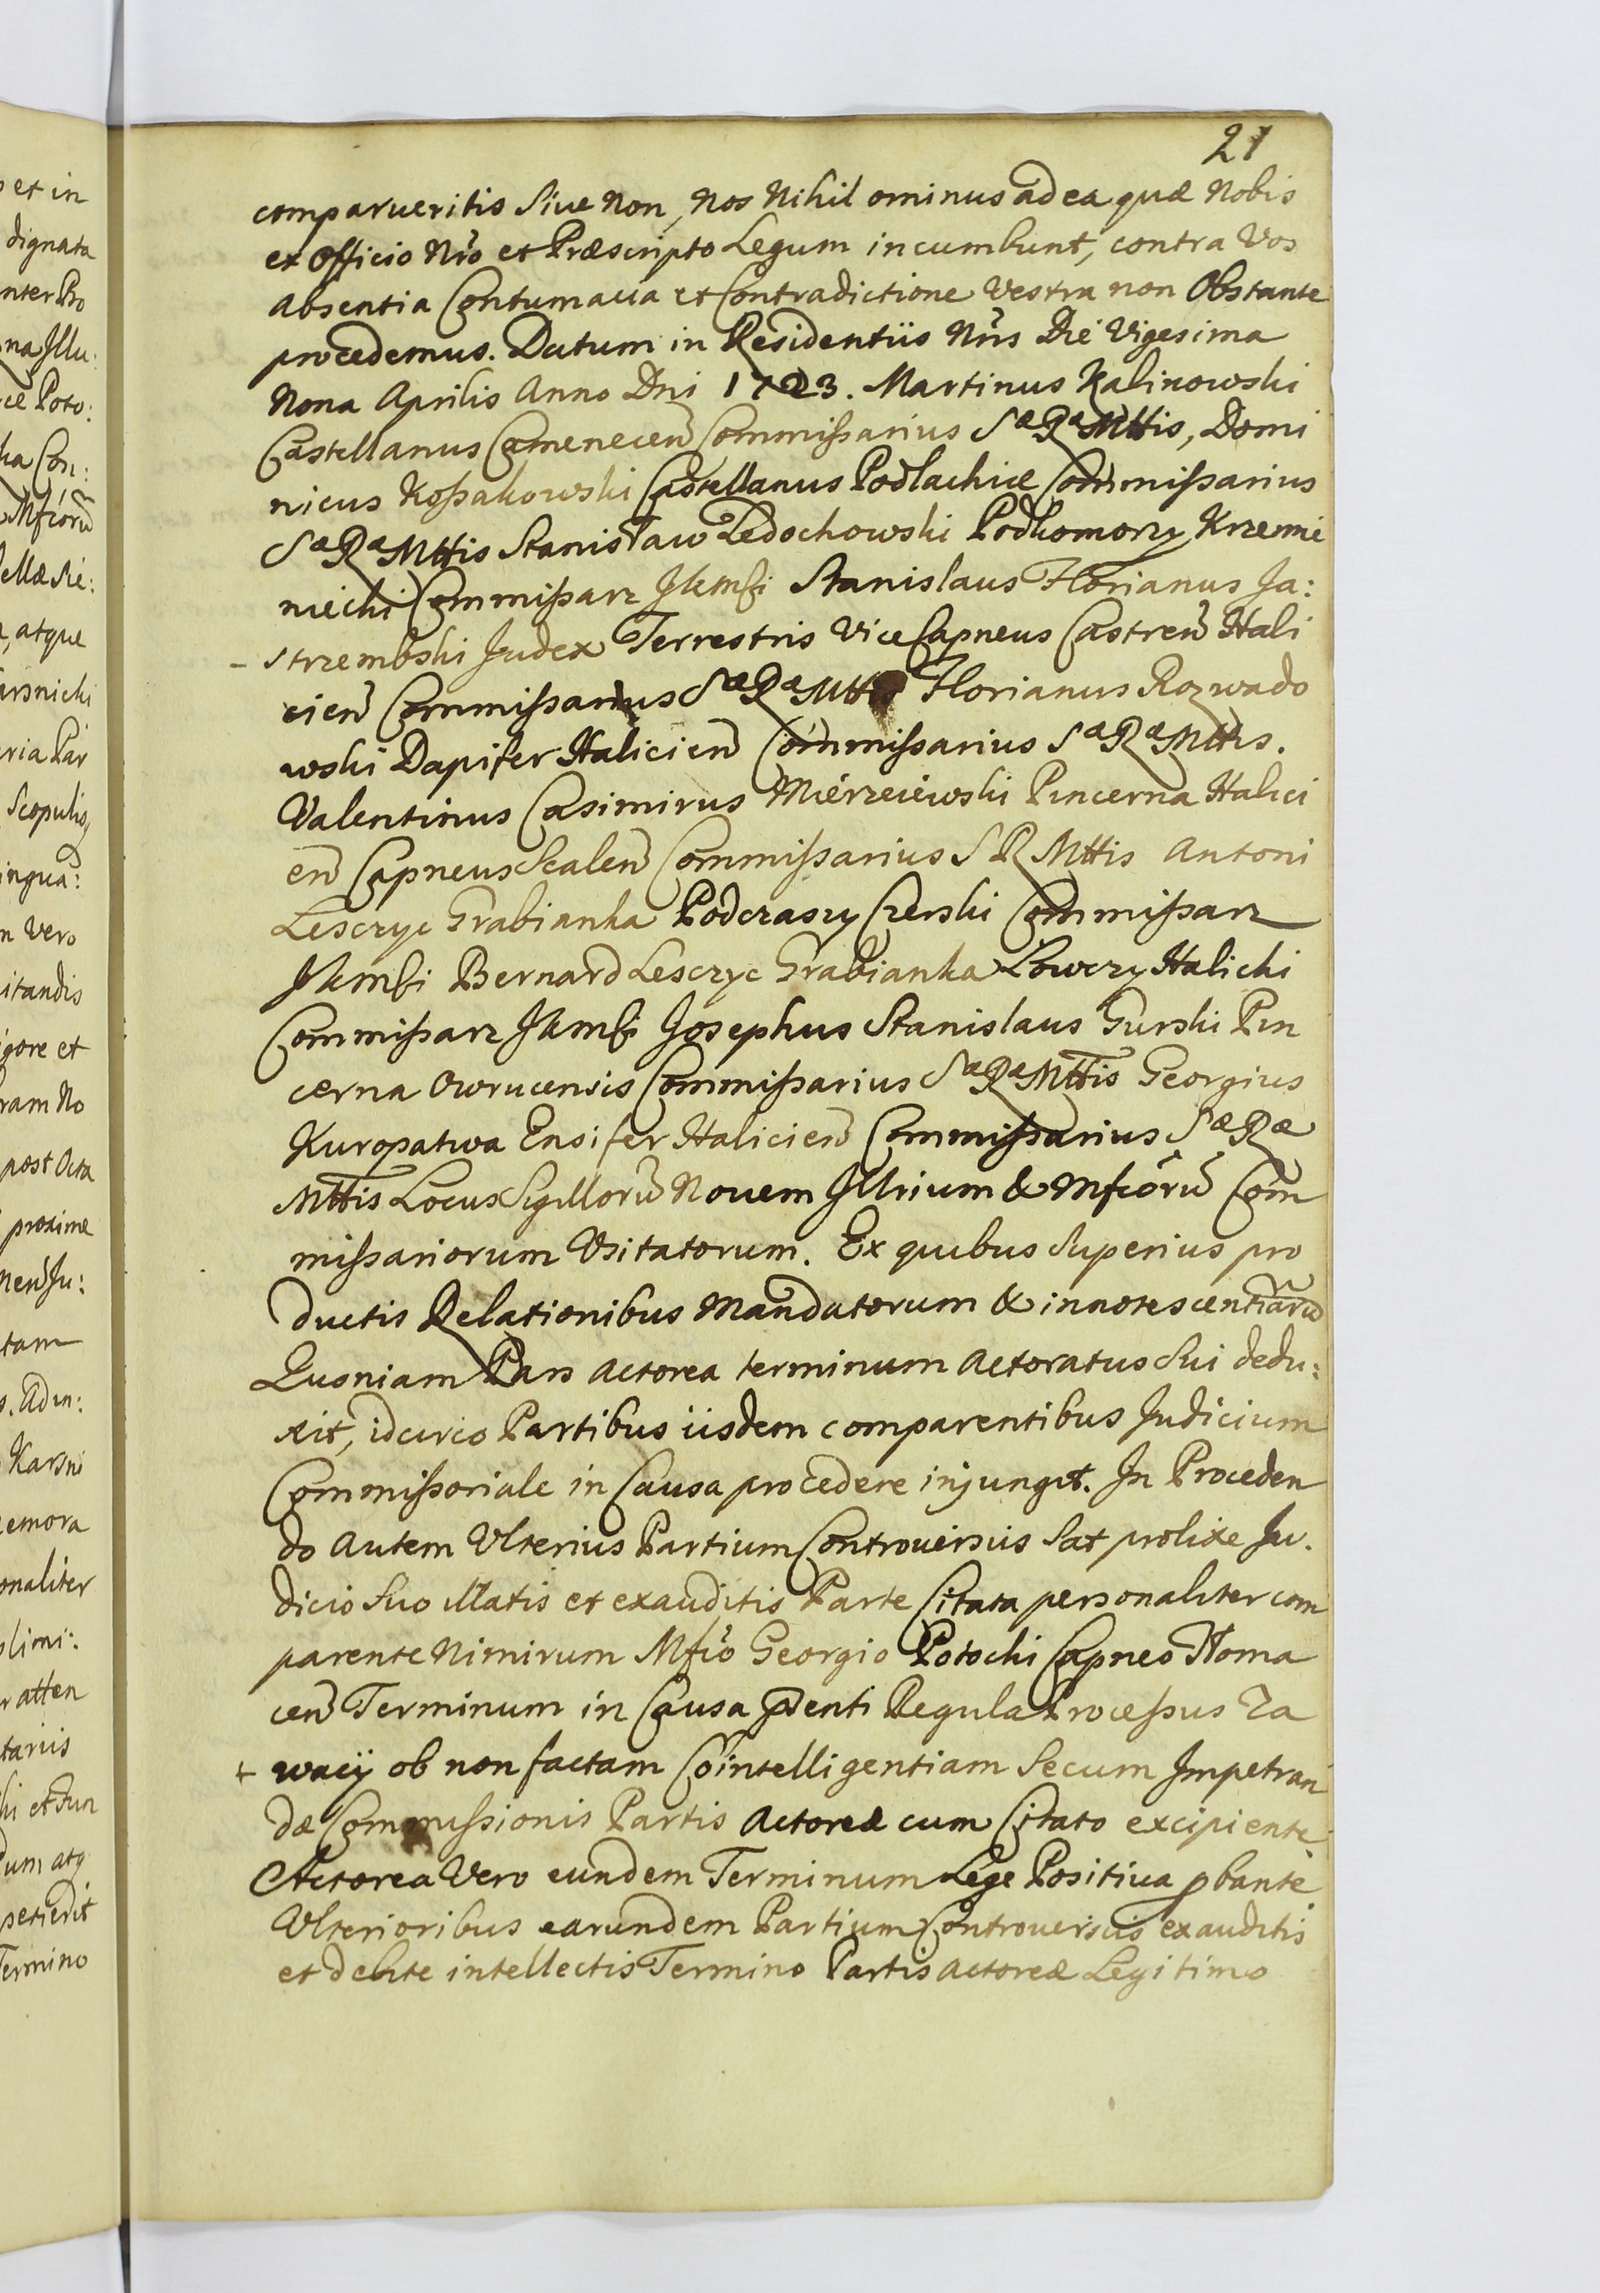 21
comparueritis Siue Non, Nos Nihil ominus ad ea quæ Nobis
ex Officio Nrõ et Præscripto Legum incumbunt, contra Vos
Absentia Contumacia et Contradictione Vestra non Obstante
procedemus. Datum in Residentiis Nrîs Die Vigesima
Nona Aprilis Anno Dni 1723. Martinus Kalinowski
Castellanus Camenecen̄ Commißarius Sæ Ræ Mttis, Domi
nicus Koßakowski Castellanus Podlachiæ Commißarius
Sæ Ræ Mttis Stanisław Ledochowski Podkomorzy Krzemie
niecki Commißarz JKmśi Stanislaus Florianus Ja:
strzembski Judex Terrestris Vice Capneus Castren̄ Hali
cien̄ Commißarius Sæ Ræ Mttis Florianus Rozwado
wski Dapifer Halicien̄ Commißarius Sæ Ræ Mttis.
Valentinus Casimirus Mierzeiewski Pincerna Halici
en̄ Capneus Scalen̄ Commißarius S R Mttis Antoni
Lesczyc Grabianka Podczaszy Czerski Commißarz
JKmśi Bernard Lesczyc Grabianka Łowczy Halicki
Commißarz JKmśi Josephus Stanislaus Gurski Pin
cerna Owrucensis Commißarius Sæ Ræ Mttis Georgius
Kuropatwa Ensifer Halicien̄ Commißarius Sæ Ræ
Mttis Locus Sigillorū Nouem Jllrium & Mfcorū Com
mißariorum Vsitatorum. Ex quibus Superius pro
ductis Relationibus Mandatorum & innotescentiarū
Quoniam Pars Actorea terminum Actoratus Sui dedu:
xit, idcirco Partibus iisdem comparentibus Judicium
Commißoriale in Causa procedere injungit. In Proceden
do Autem Vlterius Partium Controuersiis Sat prolixe Ju.
dicio Suo illatis et exauditis Parte Citata personaliter com
parente Nimirum Mfcō Georgio Potocki Capneo Tłoma
cen̄ Terminum in Causa p̄senti Regula Proceßus Za
+ wacij ob non factam Cointelligentiam Secum Impetran
dæ Commißionis Partis Actoreæ cum Citato excipiente
Actorea Vero eundem Terminum Lege Positiua p̱bante
Vlterioribus earundem Partium Controuersiis exauditis
et debite intellectis Termino Partis Actoreæ Legitimo